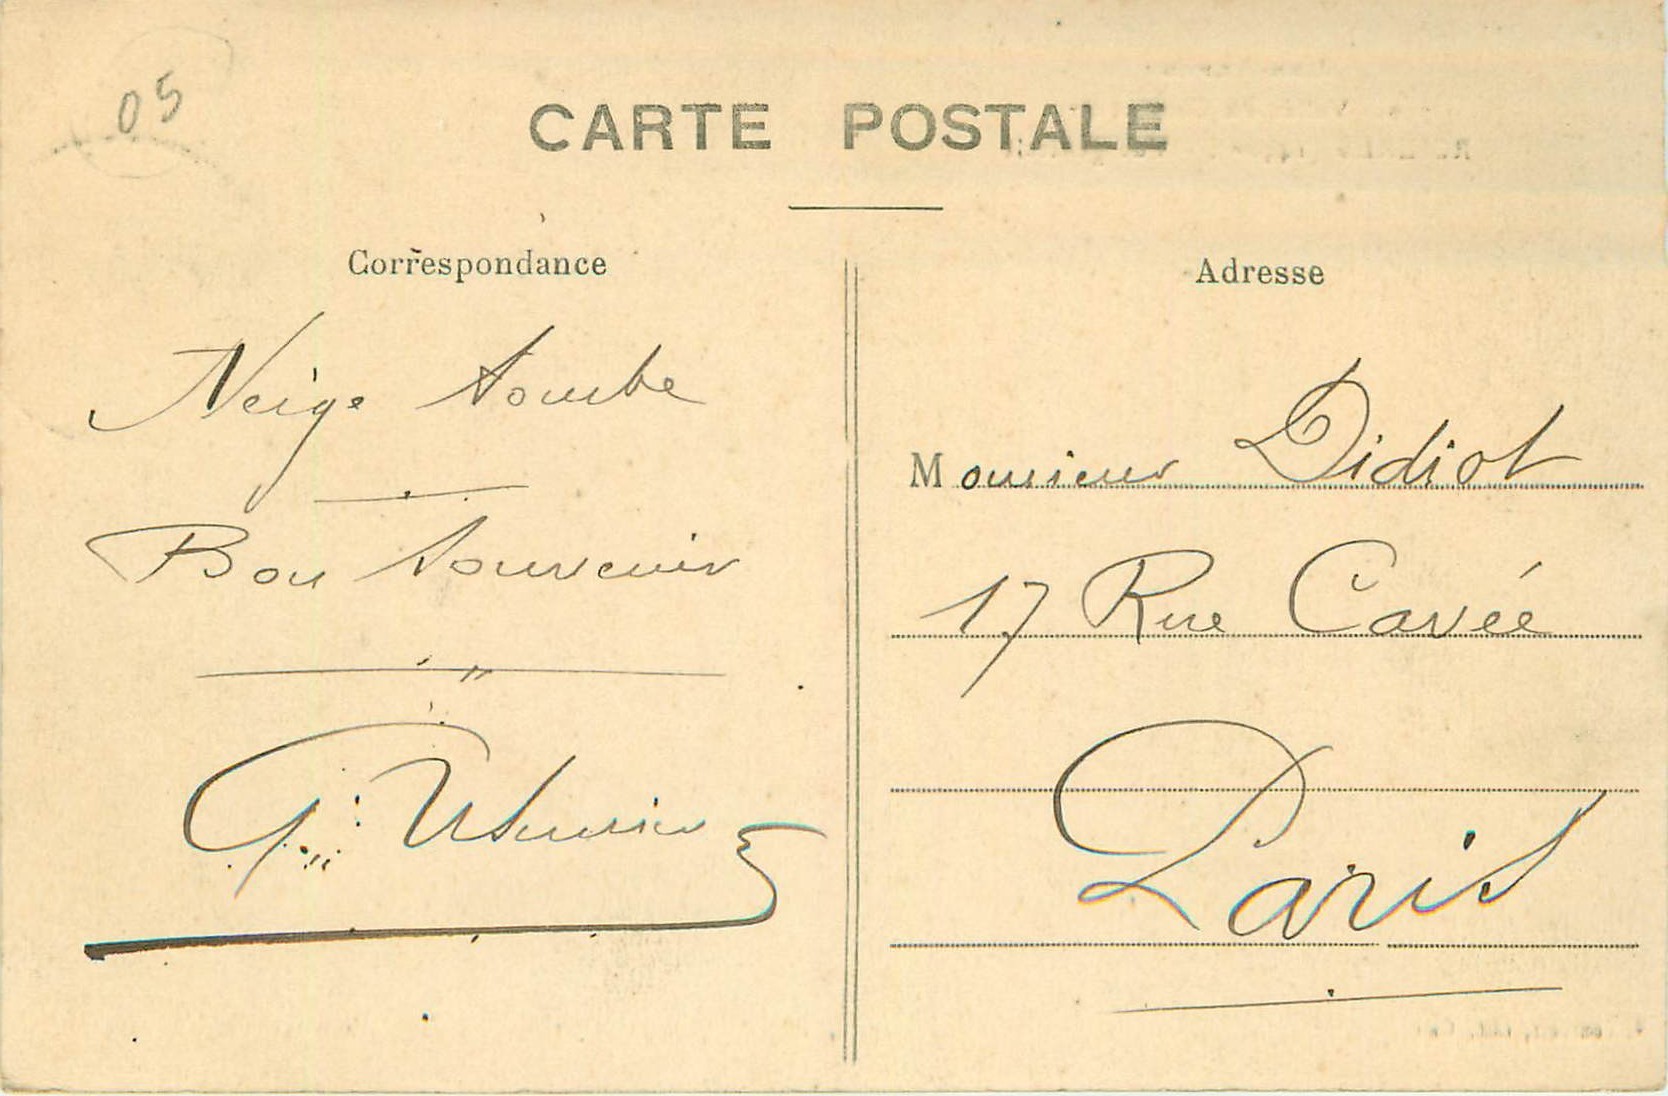 05
CARTE POSTALE
Correspondance
Neige tombe
Bon Souvenir
Adresse
Monsieur Didiot
17 Rue Cavée
Paris